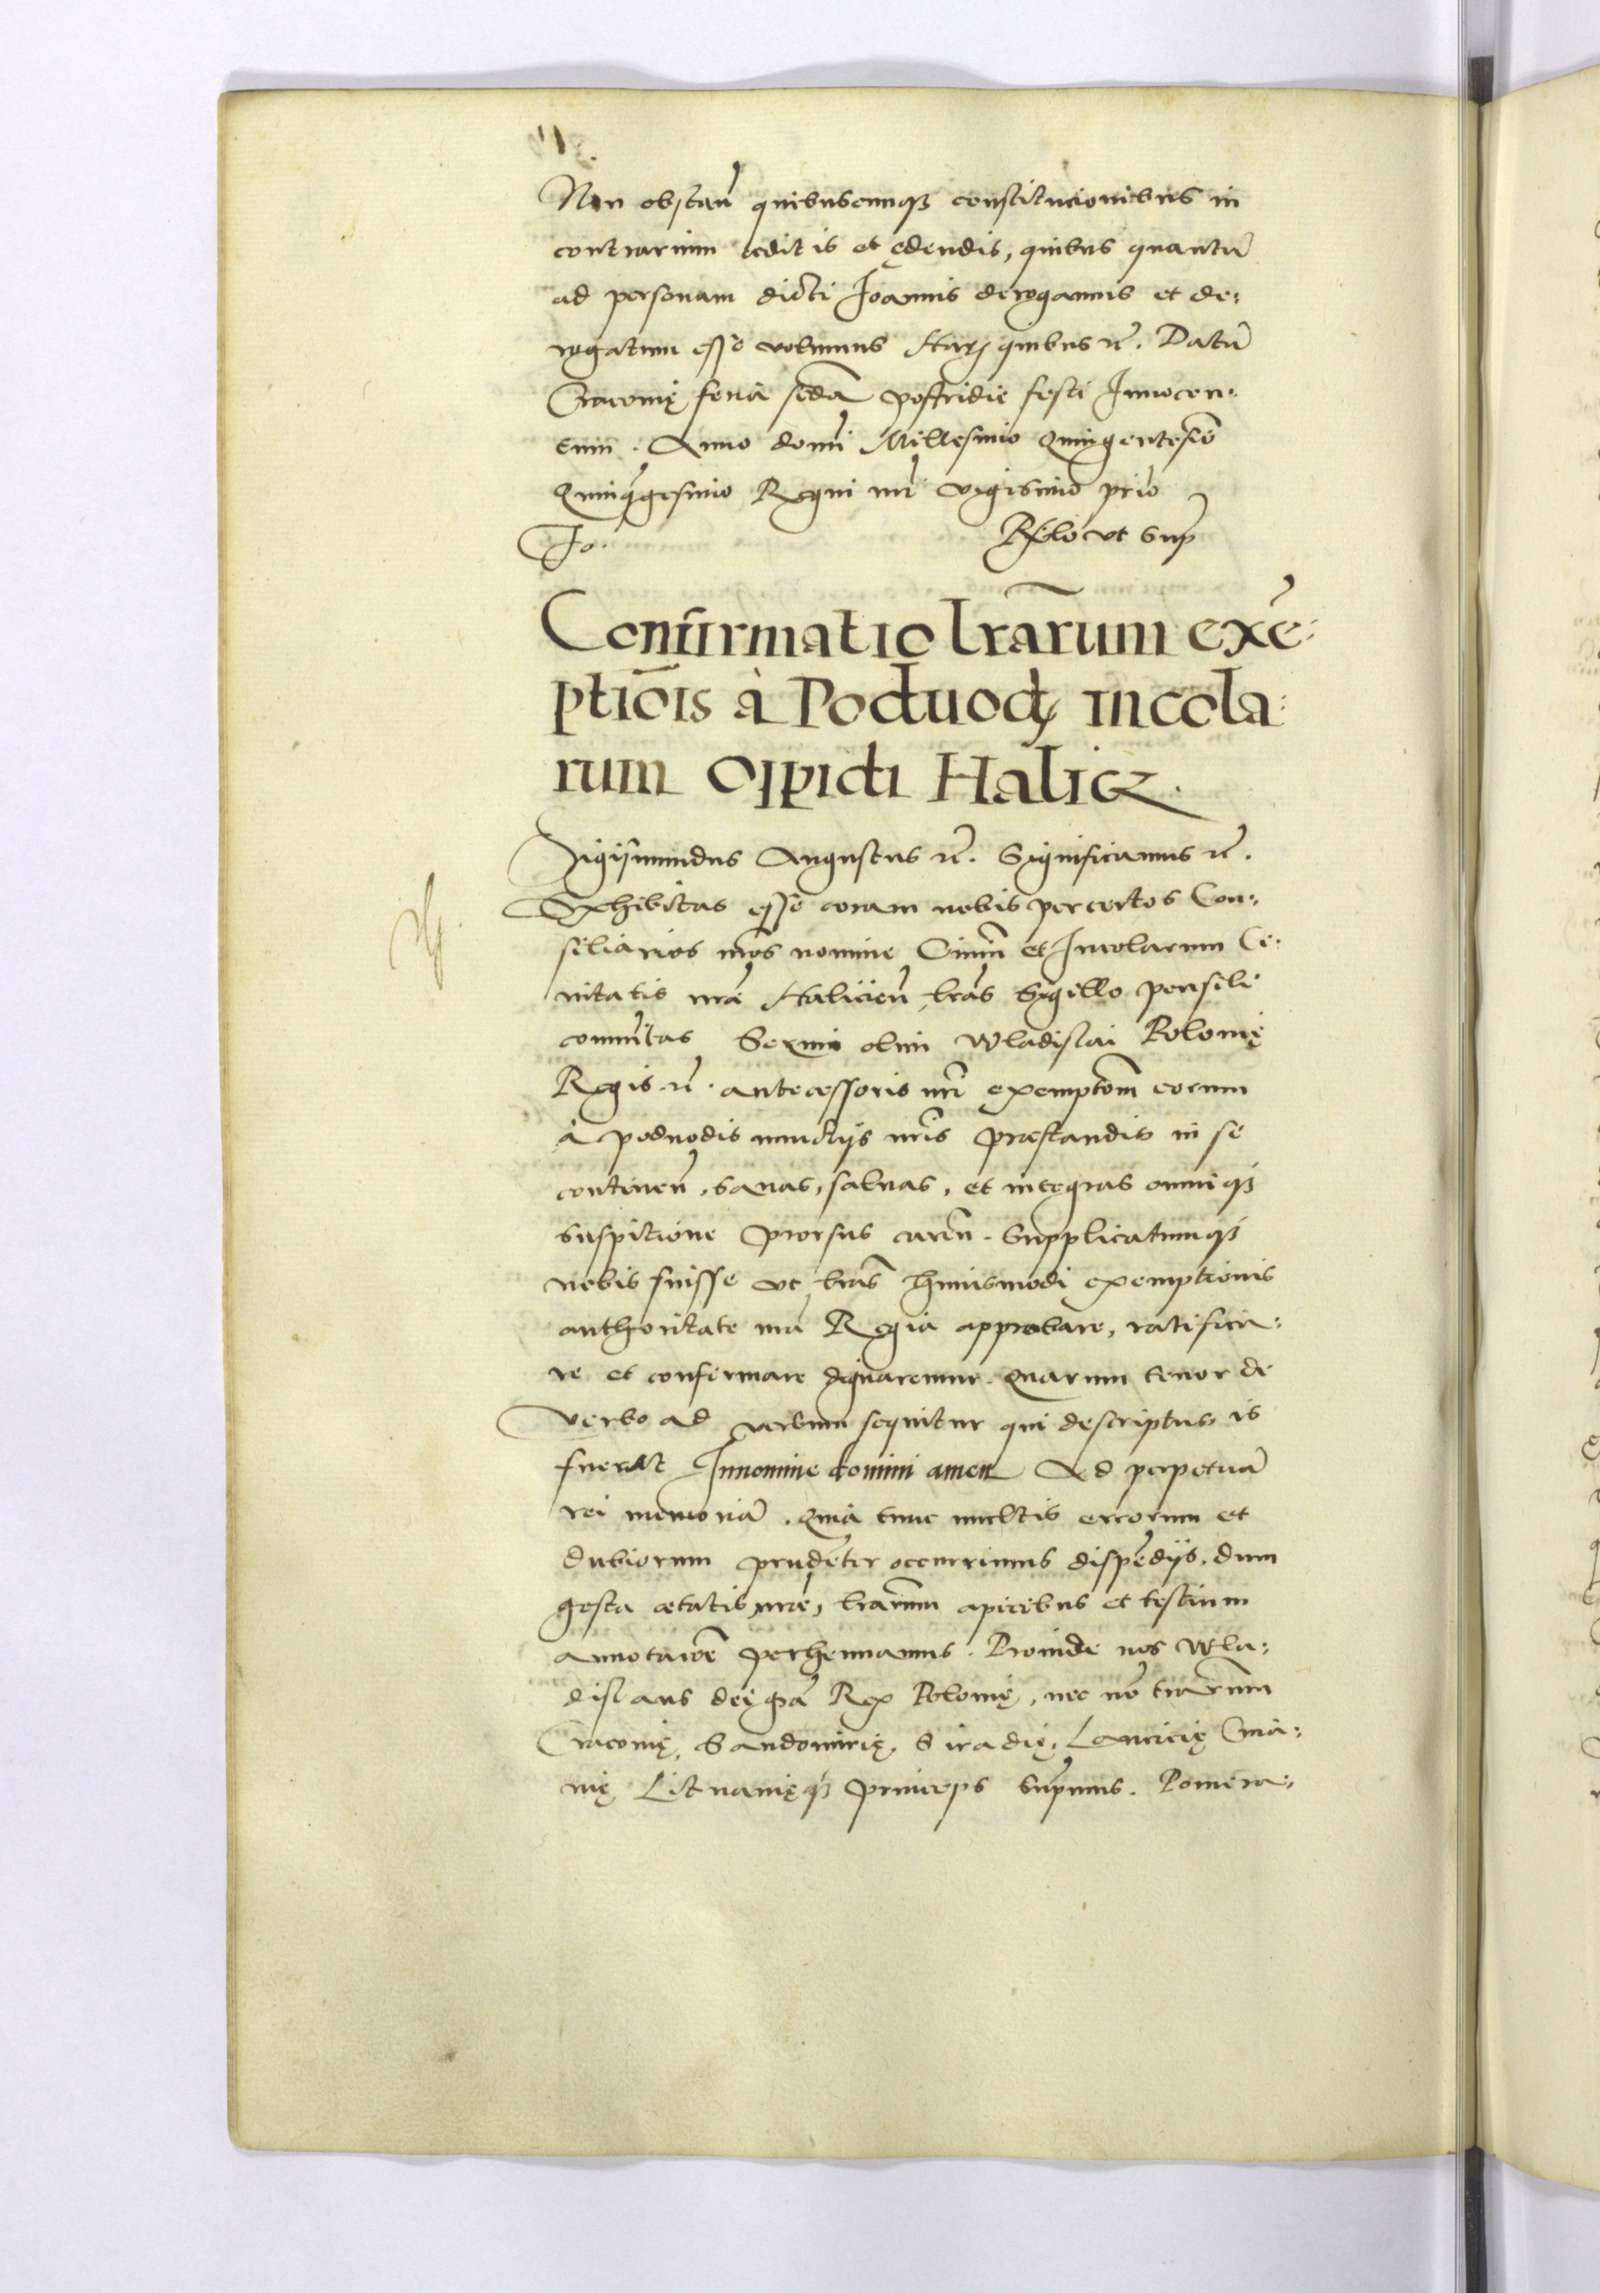 Non obstan̄ quibuscumq₃ constitucionibus in
contrarium editis et ędendis, quibus quantū
ad personam dicti Joannis derogamus et de:
rogatum esse volumus Harū quibus rc̄. Datū
Cracouię feria secdā postridie festi Innocen:
tum. Anno domī Millesimo Quingentesīo
Quinq̄gesimo Regni nrī vigesimo prīo
Jo. Rlō vt sup
Confirmatio lrārum exē:
ptiōis à Poduod₎ incola:
rum oppidi Halicz.
Sigismundus Augustus rc̄. Significamus rc̄.
Exhibitas esse coram nobis per certos Con:
siliarios nrōs nomine Ciuiū et Incolarum Ci:
uitatis nrāe Haliciēn lrās Sigillo pensili
comūitas Serēmi olim Wladislai Polonię
Regis rc̄. antecessoris nrī exemptōem eorum
à poduodis nunctijs nrīs præstandis in se
continēn, sanas, saluas, et integras omniq₃
suspitione prorsus carēn. Supplicatumq₃
nobis fuisse vt lrās huiusmodi exemptionis
authoritate nrā Regia approbare, ratifica:
re et confirmare dignaremur. Quarum tenor de
verbo ad verbum sequitur qui descriptus is
fuerat In nomine domini amen Ad perpetuā
rei memoriā. Quia tunc multis errorum et
dubiorum prudēter occurrimus dispēdijs, dum
gesta ætatis nrāe, lrārum apicibus et testium
annotacōe perhennamus. Proinde nos Wla:
dislaus dei grā Rex Polonię, nec nō trārum
Cracouię, Sandomirię, Siradię, Lancicię Cuia:
uię Lituanięq₃ princeps suprmus. Pomera: